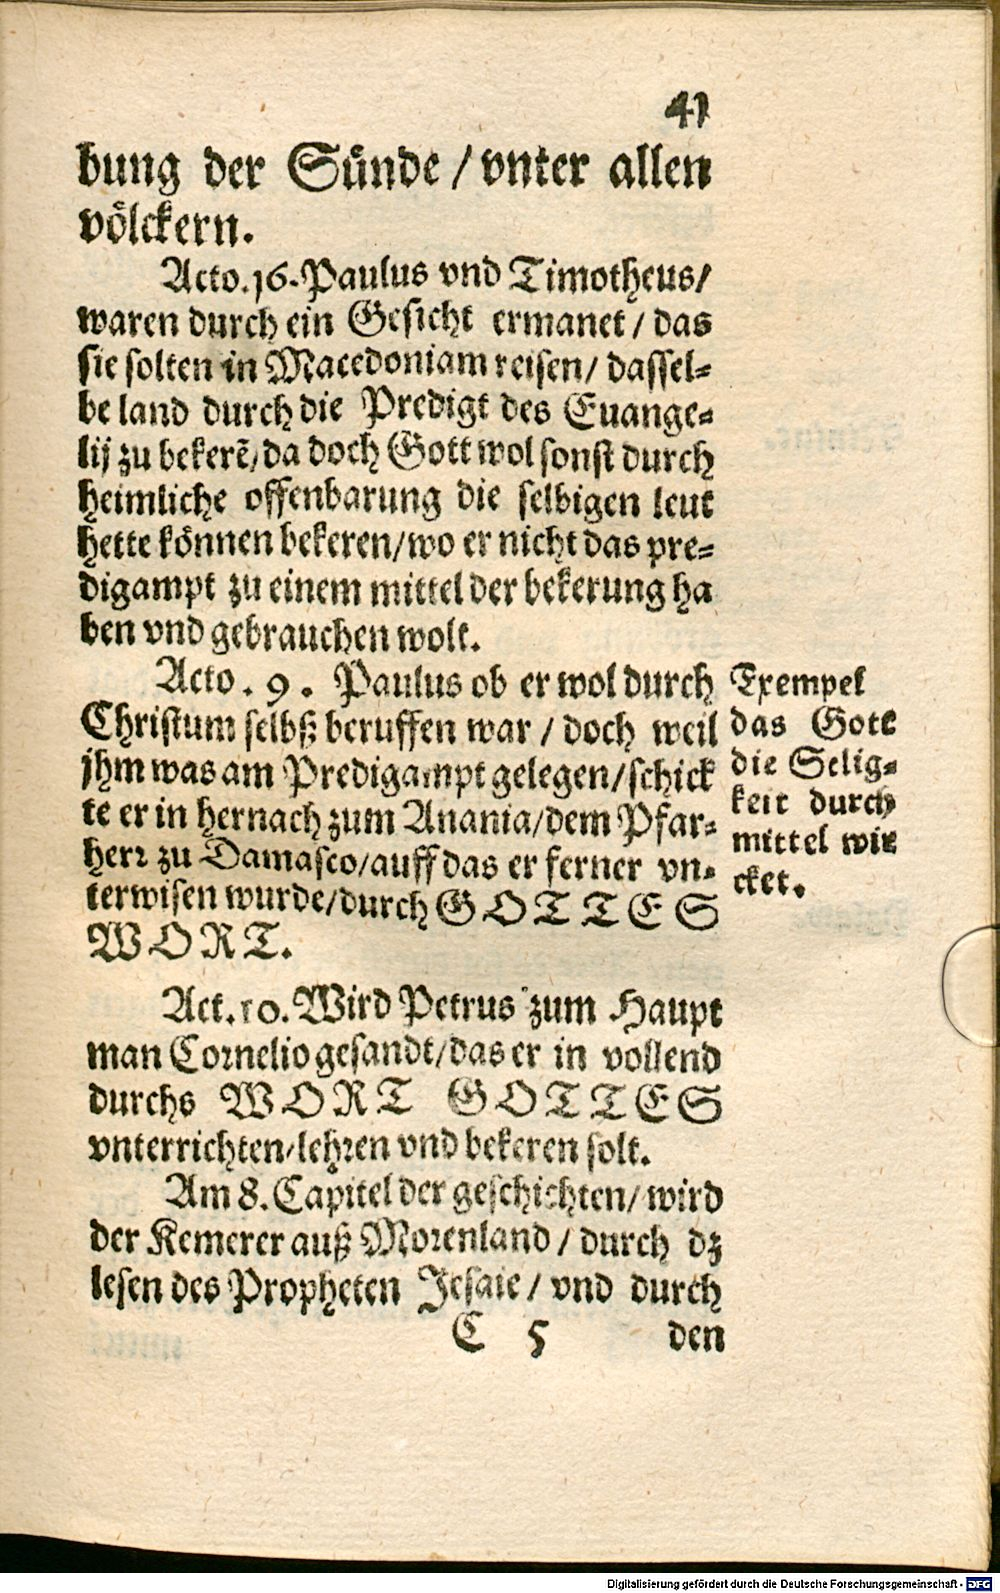 41
bung der Sünde / vnter allen
völckern.
Acto. 16. Paulus vnd Timotheus/
waren durch ein Gesicht ermanet / das
sie solten in Macedoniam reisen / dassel-
be land durch die Predigt des Euange-
lij zu bekerẽ / da doch Gott wol sonst durch
heimliche offenbarung die selbigen leut
hette können bekeren / wo er nicht das pre-
digampt zu einem mittel der bekerung ha
ben vnd gebrauchen wolt.
Acto. 9. Paulus ob er wol durch
Christum selbß beruffen war / doch weil
jhm was am Predigampt gelegen / schick
te er in hernach zum Anania / dem Pfar-
herr zu Damasco / auff das er ferner vn-
terwisen wurde / durch GOTTES
WORT.
Exempel
das Gott
die Selig-
keit durch
mittel wir
cket.
Act. 10. Wird Petrus zum Haupt
man Cornelio gesandt / das er in vollend
durchs WORT GOTTES
vnterrichten / lehren vnd bekeren solt.
Am 8. Capitel der geschichten / wird
der Kemerer auß Morenland / durch dz
lesen des Propheten Jesaie / vnd durch
C 5 den
Digitalisierung gefördert durch die Deutsche Forschungsgemeinschaft - DFG